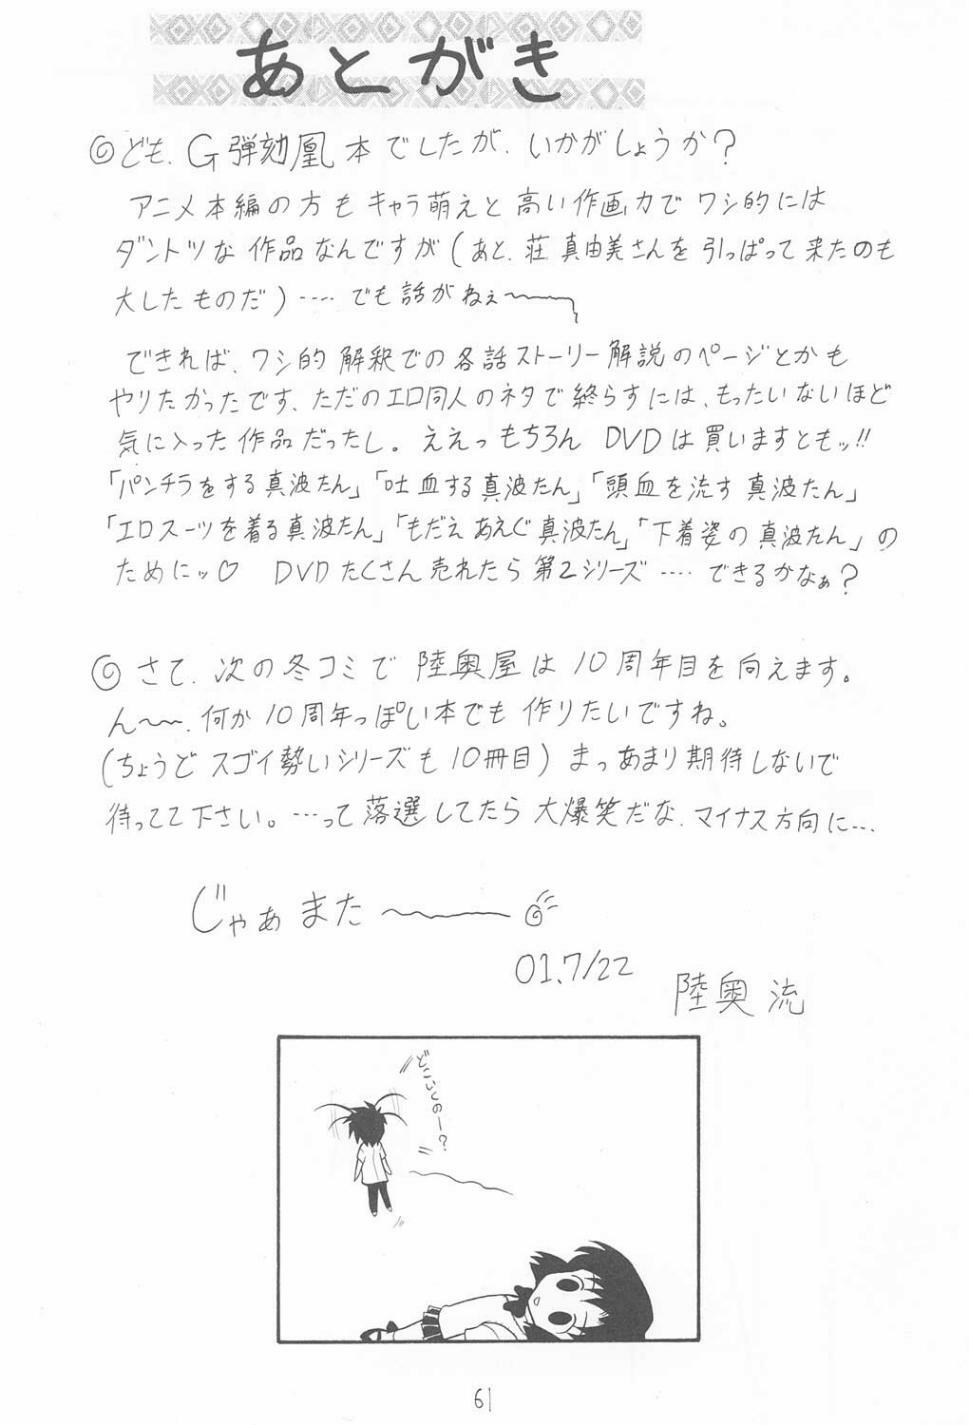 あとがき
◎ども、G弾劾凰本でしたが、いかがしょうか？
アニメ本編の方もキャラ萌えと高い作画力でワシ的には
ダントツな作品なんですが(あと、荘真由美さんを引っぱって来たのも
大したものだ)‥‥でも話がねぇ〜
できれば、ワシ的解釈での各話ストーリー解説のページとかも
やりたかったです、ただのエロ同人のネタで終らすには、もったいないほど
気に入った作品だったし。ええっもちろんDVDは買いますともッ!!
「パンチラをする真波たん」「吐血する真波たん」「頭血を流す真波たん」
「エロスーツを着る真波たん」「もだえあえぐ真波たん」「下着姿の真波たん」の
ためにッ♡ DVDたくさん売れたら第2シリーズ‥‥できるかなぁ？
◎さて、次の冬コミで陸奥屋は10周年目を向えます。
ん〜〜、何か10周年っぽい本でも作りたいですね。
(ちょうどスゴイ勢いシリーズも10冊目)まっあまり期待しないで
待ってて下さい。…って落選してたら大爆笑だな、マイナス方向に…
じゃぁまた〜
01.7/22
陸奥流
どこいくのー？
61